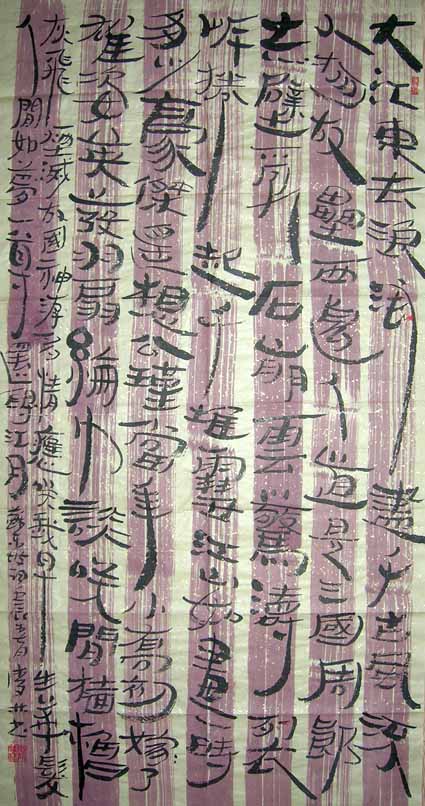 大江東去浪淘盡千古風流
人物故壘西邊人道是三國周郎
赤壁亂石崩雲驚濤裂
岸捲起千堆雪江山如畫一時
多少豪傑遙想公瑾當年小喬初嫁了
雄姿英發羽扇綸巾談笑間檣櫓
灰飛煙滅故國神游多情應笑我早生華髮
人間如夢一尊還酹江月 蘇東坡詞